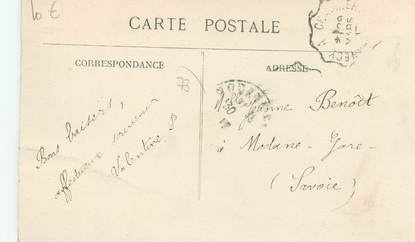 10 €
CARTE POSTALE
CORRESPONDANCE
ADRESSE
Bons baisers,
affectueux souvenir
Valentine B
Jeanne Benoît
à Modane-Gare-
(Savoie)